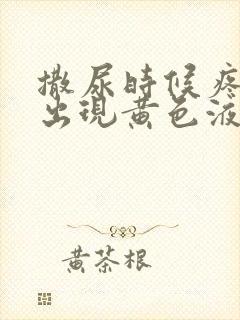 撒尿時候疼
出現黄色液
黄茶根